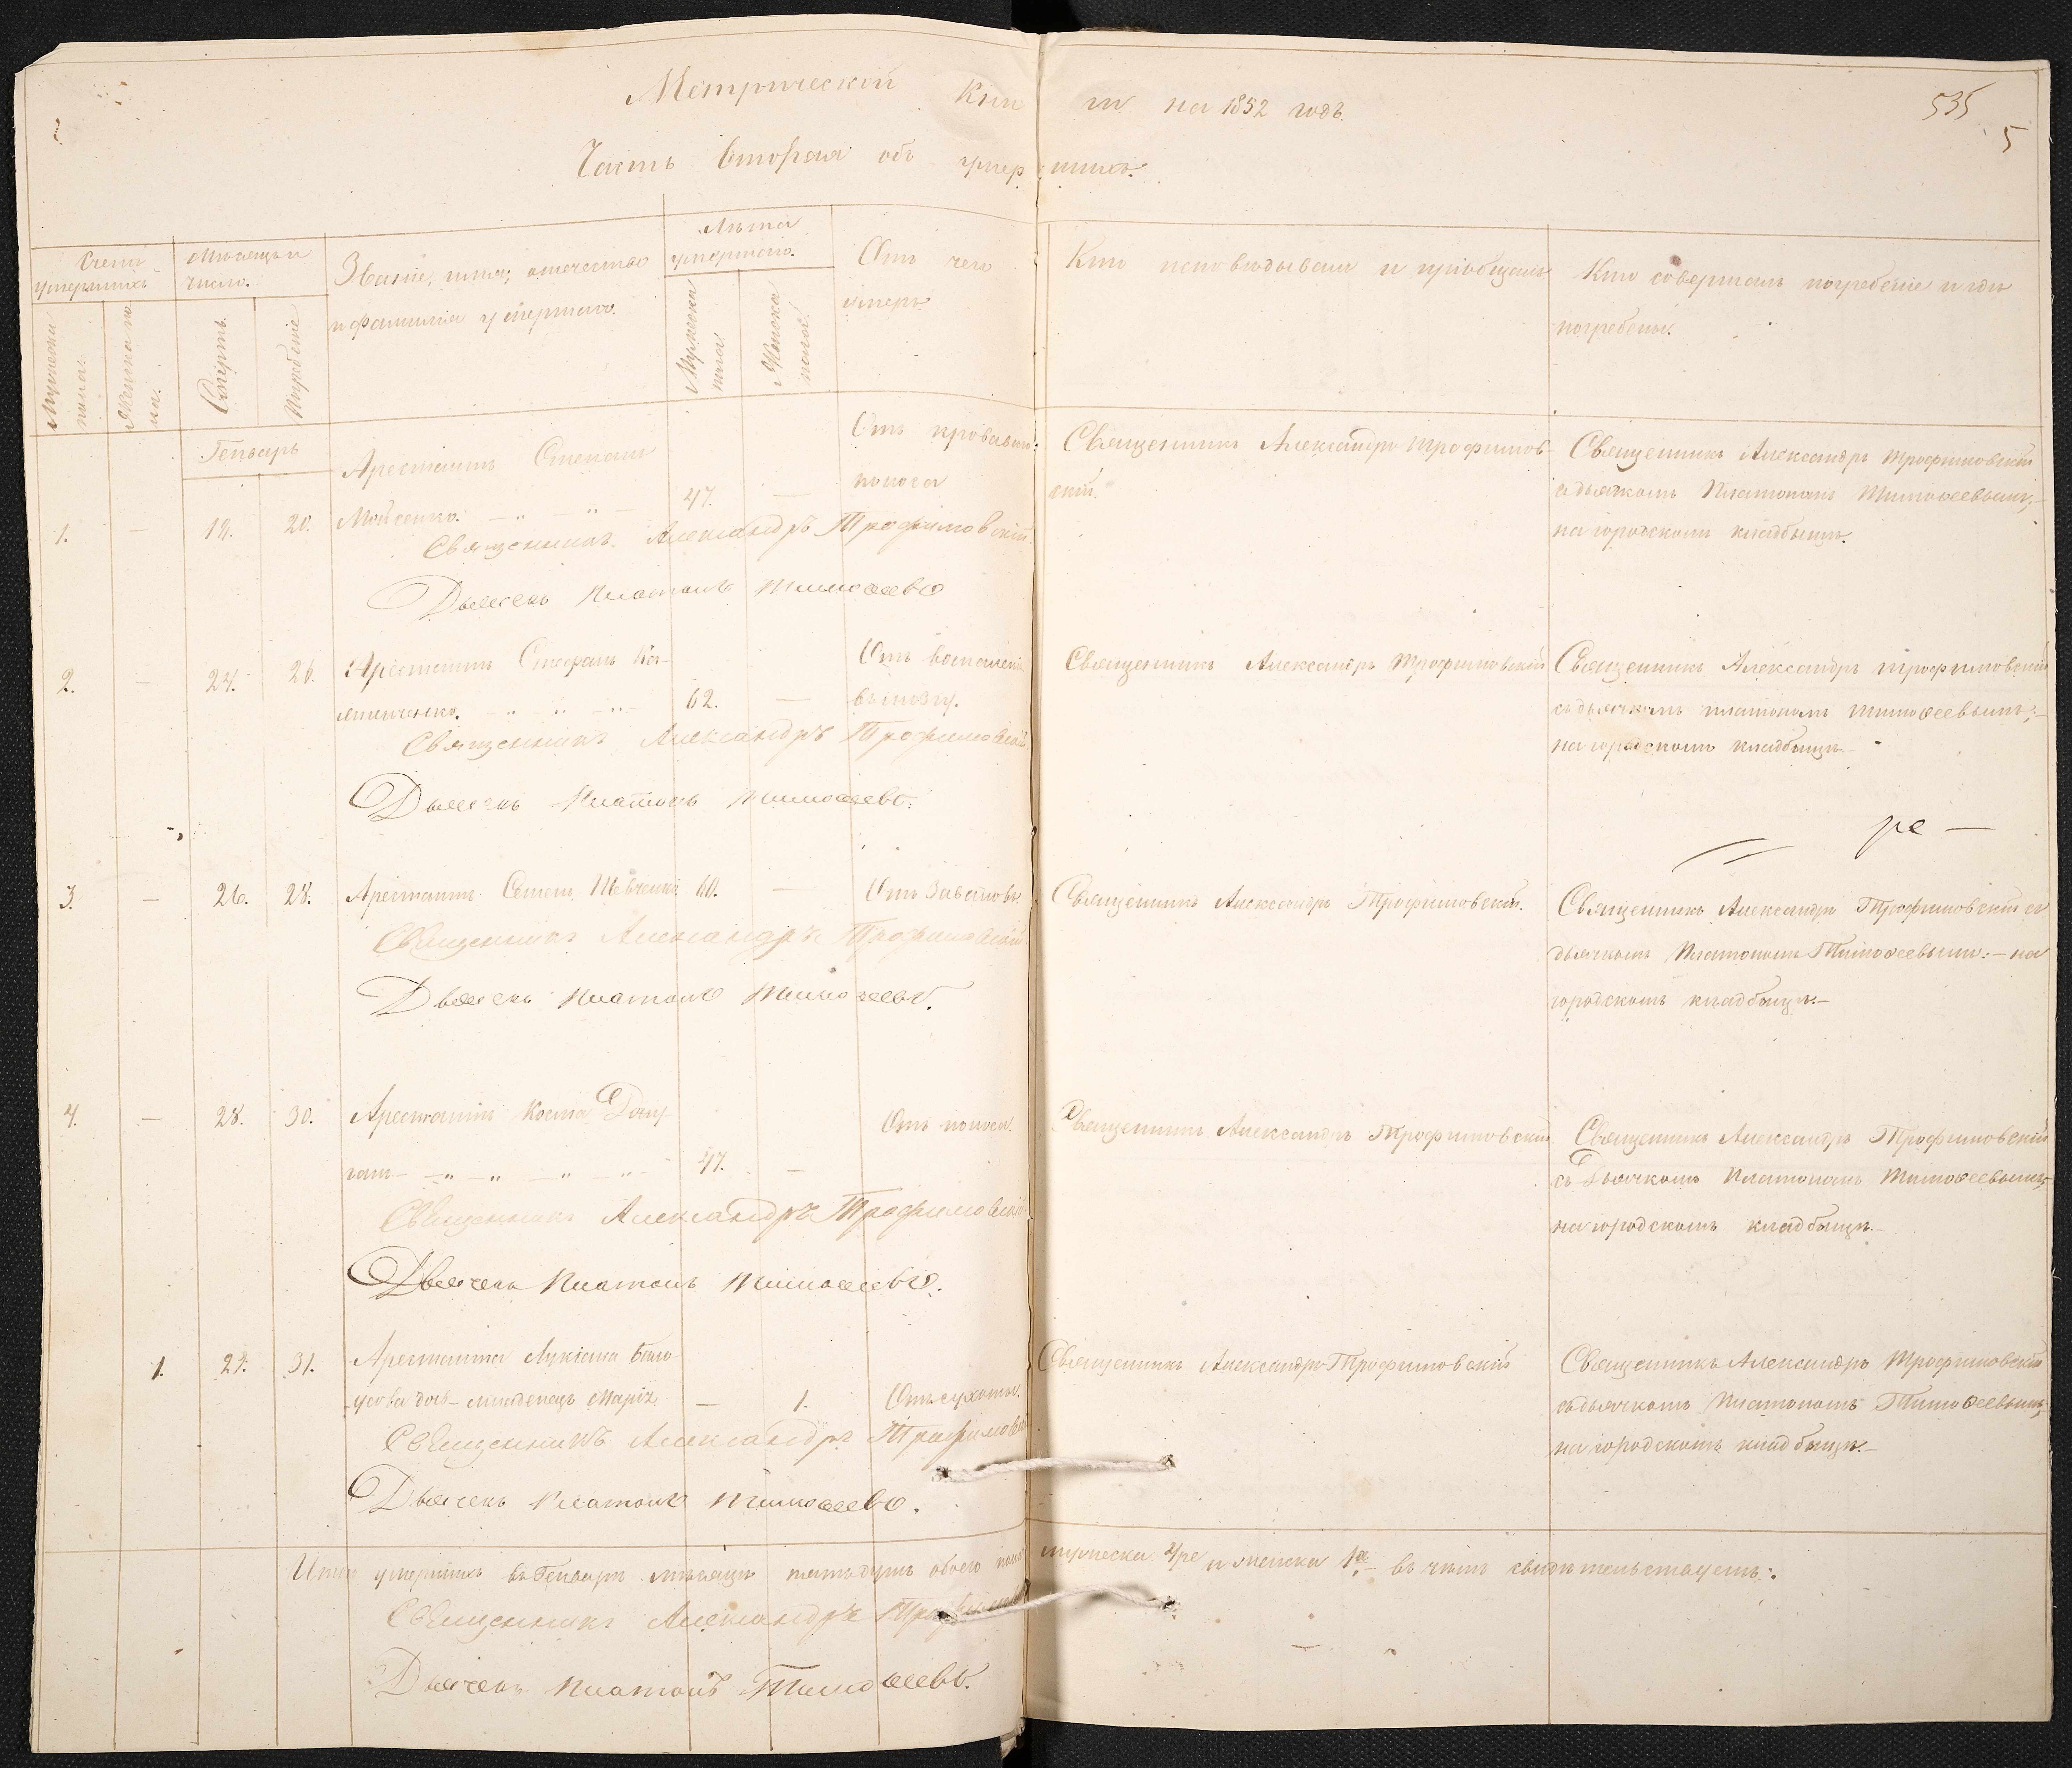 Метрической Кни ги на 1852 годъ.
535
5
Часть Вторая объ умер шихъ.
Счетъ умершихъ
Мужеска пола.
Женска пола.
Мѣсяцъ и число.
Смерть.
Погребеніе
Званіе, имя, отечество и фамилія умершаго.
Лѣта умершаго.
Мужеска пола
Женска пола.
Отъ чего умеръ
Кто исповѣдывалъ и пріобщалъ
Кто совершалъ погребеніе и гдѣ погребены.
Генварь
1. — 18. 20.
Арестантъ Степанъ
Мойсенко. 47. —
Отъ кроваваго
поноса
Священникъ Александръ Трофимов-
скій.
Священникъ Александръ Трофимовскій
съ дьячкомъ Платономъ Тимоѳеевымъ,—
на городскомъ кладбищѣ.
Священникъ Александръ Трофимовскій
Дьячекъ Платонъ Тимоѳеевъ
2. — 24. 26.
Арестантъ Стефанъ Ка-
62. —
Отъ воспаленія
въ мозгу.
Священникъ Александръ Трофимовскій
Священникъ Александръ Трофимовскій
съ дьячкомъ Платономъ Тимоѳеевымъ;—
на городскомъ кладбищѣ.—
Священникъ Александръ Трофимовскій
Дьячекъ Платонъ Тимоѳеевъ.
ре —
3. — 26. 28.
Арестантъ Семенъ Шевченко 60. —
Священникъ Александръ Трофимовскій.
Священникъ Александръ Трофимовскій съ
дьячкомъ Платономъ Тимоѳеевымъ.— на
городскомъ кладбищѣ.—
Священникъ Александръ Трофимовскій
Дьячекъ Платонъ Тимоѳеевъ.
4. — 28. 30.
Арестантъ Косма
47. —
Отъ поноса.
Священникъ Александръ Трофимовскій
Священникъ Александръ Трофимовскій
съ Дьячкомъ Платономъ Тимоѳеевымъ,—
на городскомъ кладбищѣ.—
Священникъ Александръ Трофимовскій
Дьячекъ Платонъ Тимоѳеевъ.
1. 29. 31.
Арестанта Лукіана Бѣло-
усова дочь младенецъ Марія — 1.
Отъ сухоты.
Священникъ Александръ Трофимовскій
Священникъ Александръ Трофимовскій
съ дьячкомъ Платономъ Тимоѳеевымъ,
на городскомъ кладбищѣ.—
Священникъ Александръ Трофимовскій
Дьячекъ Платонъ Тимоѳеевъ.
Итого умершихъ въ Генварѣ мѣсяцѣ пять душъ обоего пола мужеска 4ре и женска 1а.— въ чемъ свидѣтельствуемъ:
Священникъ Александръ Трофимовскій
Дьячекъ Платонъ Тимоѳеевъ.